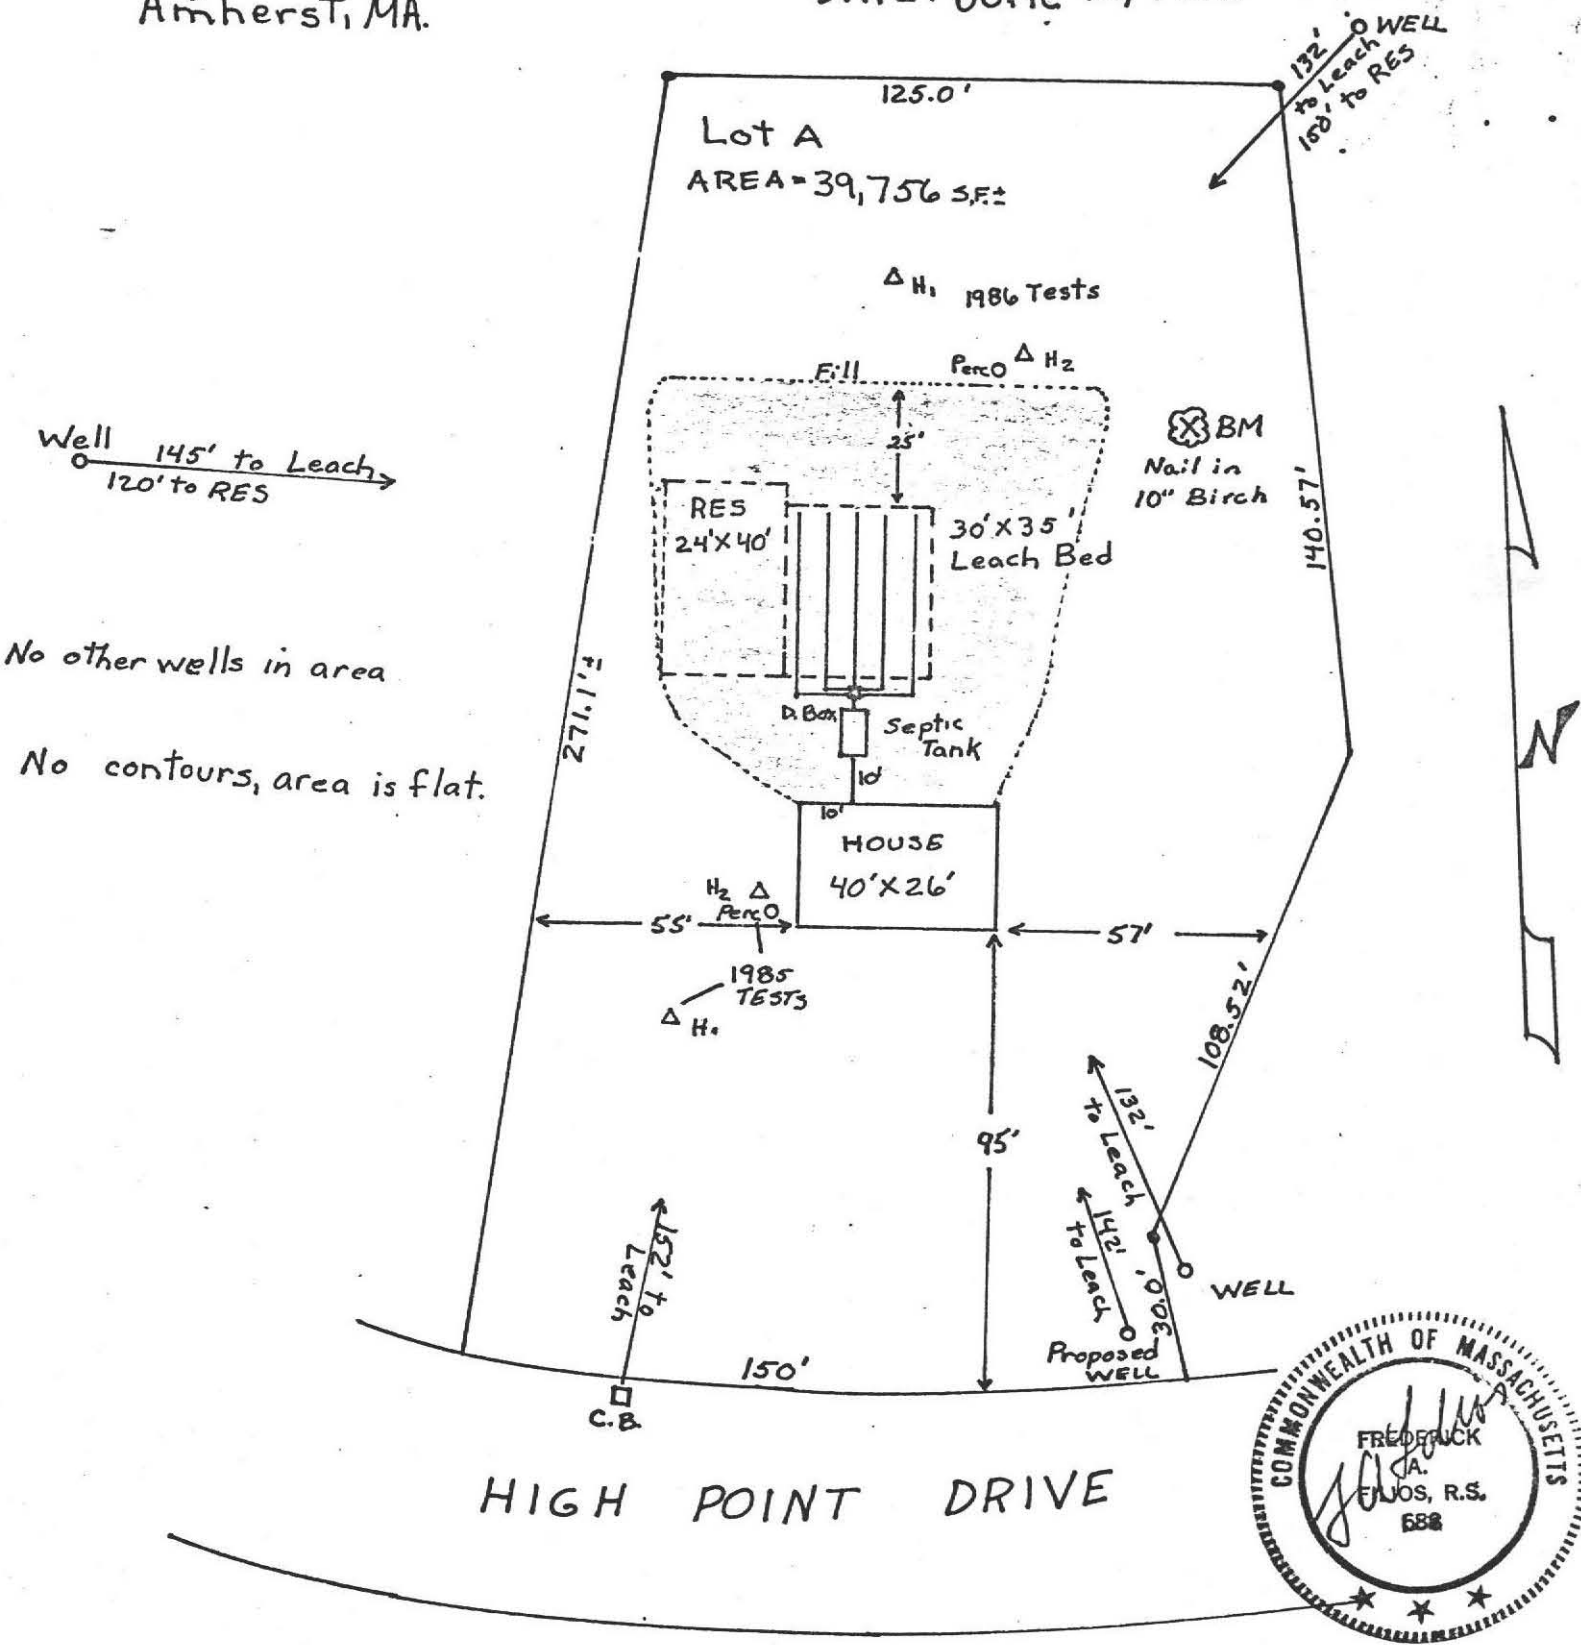 Amherst, MA.
WELL
132'
to Leach
150' to RES
125.0'
Lot A
AREA = 39,756 S.F.±
△ H1 1986 Tests
Perc O △ H2
Fill
25'
BM
Nail in
10" Birch
Well
145' to Leach
120' to RES
RES
24'X40'
30'X35'
Leach Bed
140.57'
No other wells in area
271.1'±
D. Box
Septic
Tank
N
No contours, area is flat.
10'
10'
HOUSE
40'X26'
H2 △
Perc O
55'
57'
1985
TESTS
△ H1
108.52'
95'
132'
to Leach
142'
to Leach
152' to
Leach
WELL
30.0'
Proposed
WELL
150'
C.B.
HIGH POINT DRIVE
COMMONWEALTH OF MASSACHUSETTS
FREDERICK
A.
FILIOS, R.S.